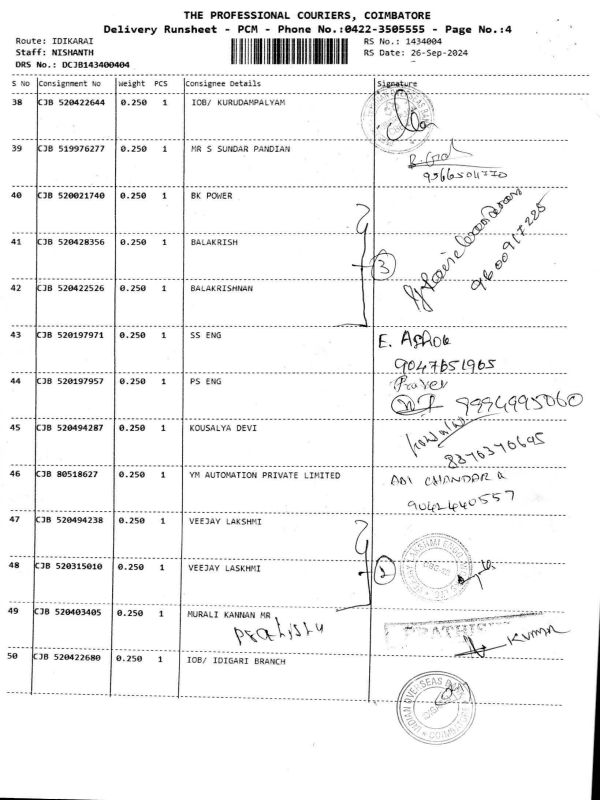 THE PROFESSIONAL COURIERS, COIMBATORE
Delivery Runsheet - PCM - Phone No.:0422-3505555 - Page No.:4
Route: IDIKARAI RS No.: 1434004
Staff: NISHANTH RS Date: 26-Sep-2024
DRS No.: DCJB143400404
S No Consignment No Weight PCS Consignee Details Signature
38 CJB 520422644 0.250 1 IOB/ KURUDAMPALYAM
39 CJB 519976277 0.250 1 MR S SUNDAR PANDIAN
9566504770
40 CJB 520021740 0.250 1 BK POWER
41 CJB 520428356 0.250 1 BALAKRISH
3
9600917225
42 CJB 520422526 0.250 1 BALAKRISHNAN
43 CJB 520197971 0.250 1 SS ENG E. Ashok
9047651965
44 CJB 520197957 0.250 1 PS ENG
9994995060
45 CJB 520494287 0.250 1 KOUSALYA DEVI
8870370695
46 CJB 80518627 0.250 1 YM AUTOMATION PRIVATE LIMITED ADI CHANDARA
9042440557
47 CJB 520494238 0.250 1 VEEJAY LAKSHMI
48 CJB 520315010 0.250 1 VEEJAY LASKHMI
2
49 CJB 520403405 0.250 1 MURALI KANNAN MR
KUMAR
50 CJB 520422680 0.250 1 IOB/ IDIGARI BRANCH
INDIAN OVERSEAS BANK
COIMBATORE